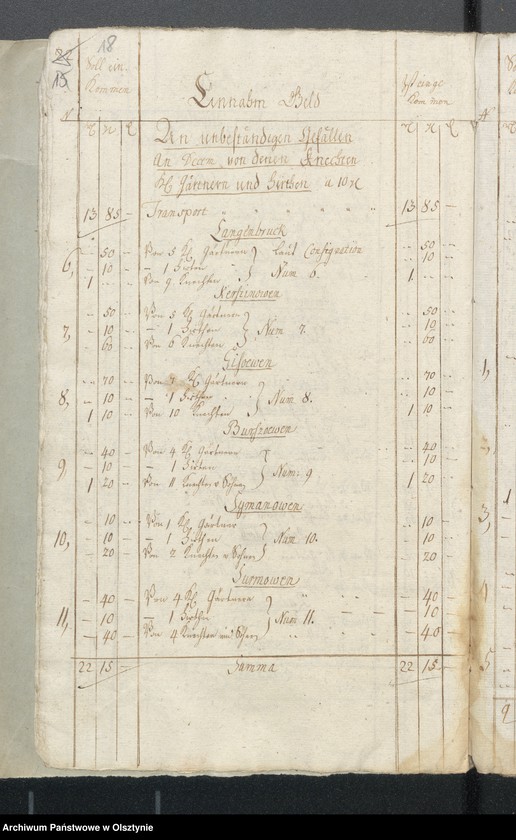 18
13
Soll ein-
kommen
Einnahm Geld
Ist einge
kommen
An unbeständigen Gefällen
An Decem von denen Knechten
Kl Gärtnern und Hirthen a 10 gl
13 85 – Transport 13 85 –
Langenbruck
– 50 – Von 5 Kl Gärtnern laut Consignation 50 –
6, – 10 – – 1 Hirten Num 6. 10 –
1 – – Von 9 Knechten 1
Kersztinowen
– 50 – Von 5 Kl Gärtnern 50
7, – 10 – – 1 Hirthen Num 7. 10
– 60 – Von 6 Knechten 60
– 70 – Von 7 Kl Gärtnern 70
8, – 10 – – 1 Hirthen Num 8. 10
1 10 – Von 10 Knechten 1 10
– 40 – Von 4 Kl Gärtnern 40
9 – 10 – – 1 Hirten Num: 9 10
1 20 – Von 11 Knechten 1 20
Symanowen
– 10 – Von 1 Kl Gärtner 10
10, – 10 – – 1 Hirthen Num 10. 10
– 20 – Von 2 Knechten 20
Surmowen
– 40 – Von 4 Kl Gärtnern 40
11, – 10 – – 1 Hirthen Num 11. 10
– 40 – Von 4 Knechten und 40
22 15 – Summa 22 15 –
Archiwum Państwowe w Olsztynie